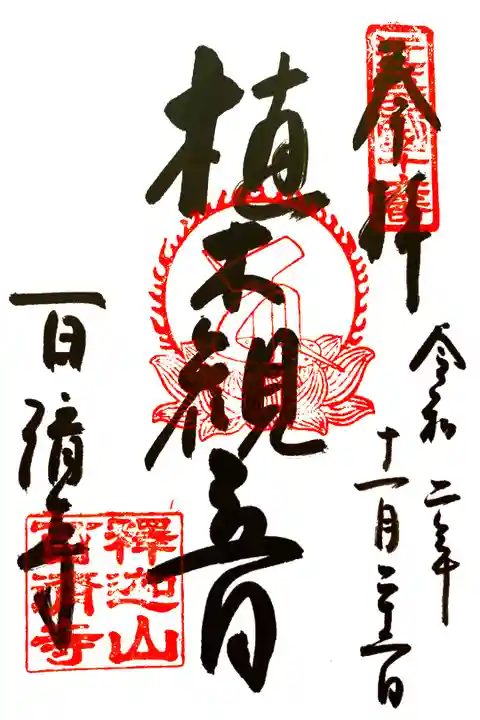 奉拝
令和二年
十一月二十三日
植木観音
百済寺
釋迦山
百濟寺